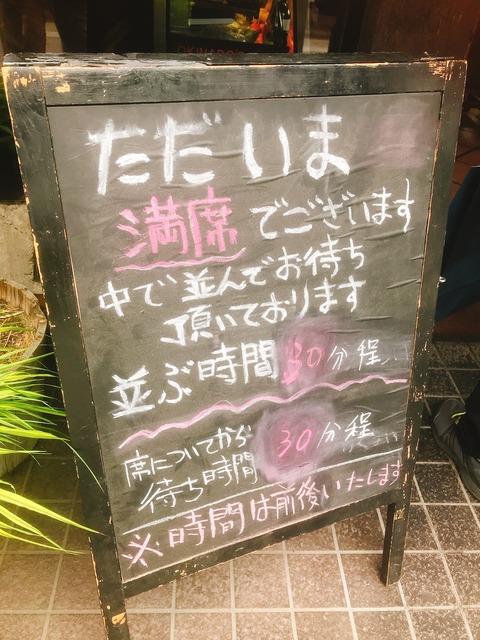 ただいま
満席でございます
中で並んでお待ち
頂いております
並ぶ時間30分程
席についてから
待ち時間30分程
※時間は前後いたします